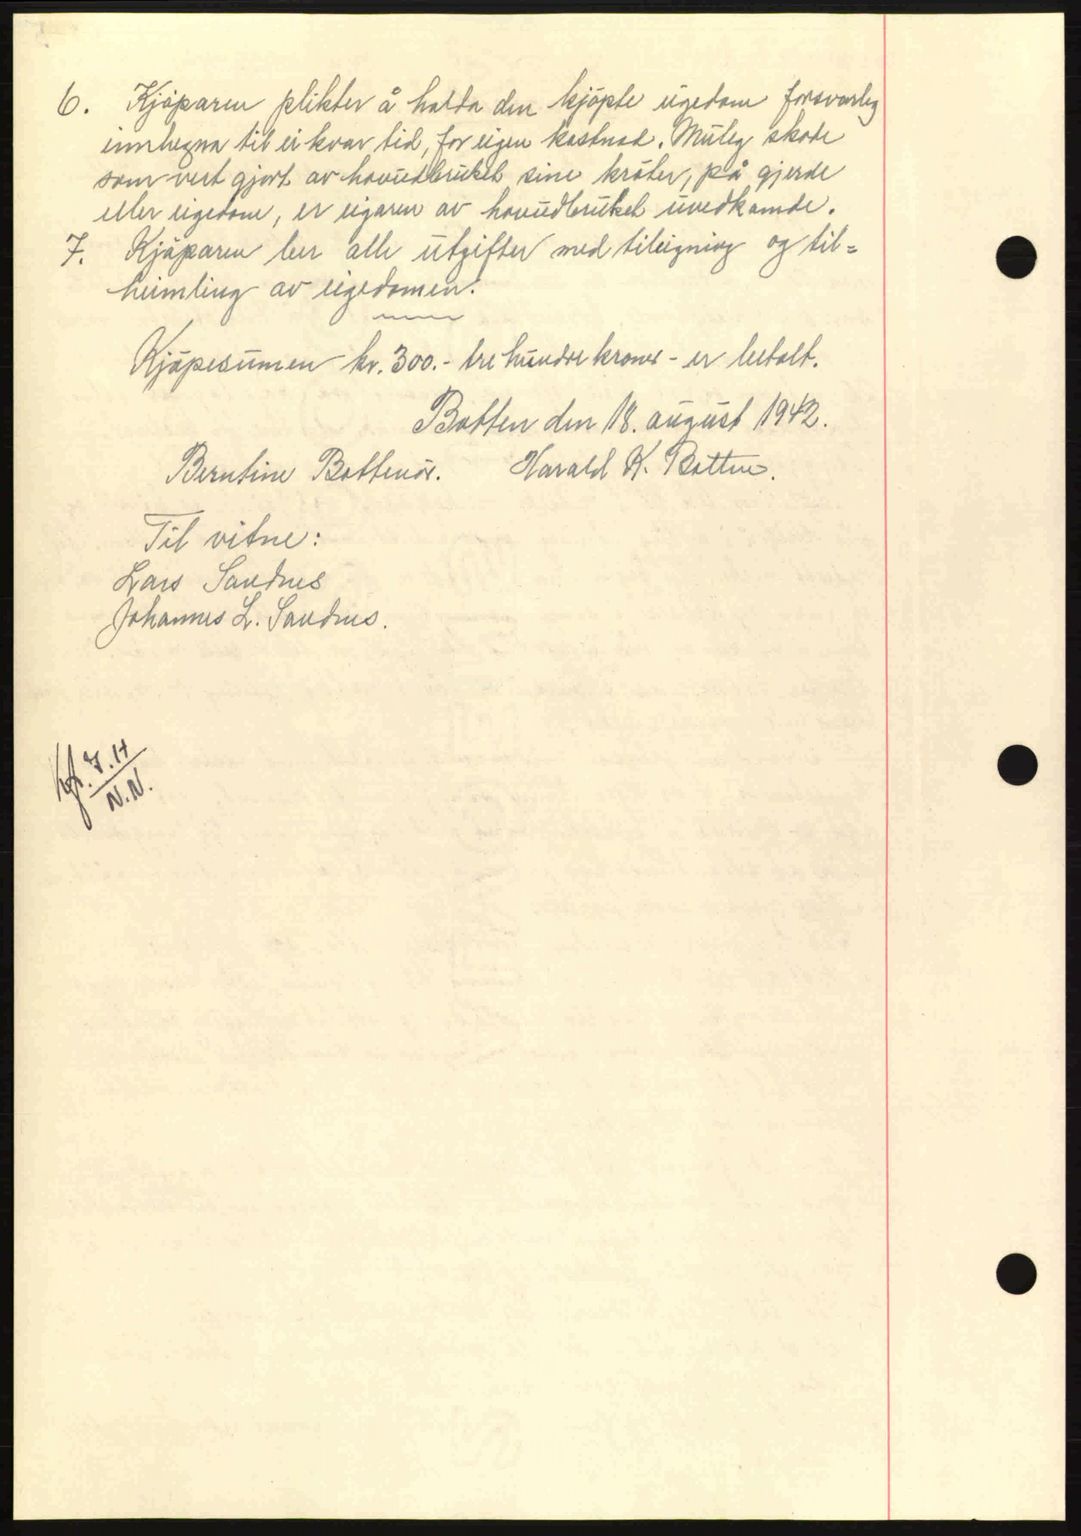 6. Kjöparen plikter å halda den kjöpte eigedom forsvarleg
innhegna til ei kvar tid, for eigen kostnad. Muleg skade
som vert gjort av hovudbruket sine krøter, på gjerde
eller eigedom, er eigaren av hovudbruket uvedkomde.
7. Kjöparen ber alle utgifter med tileigning og til=
heimling av eigedomen.
Kjöpesumen kr. 300.- tre hundre kroner - er betalt.
Botten den 18. august 1942.
Berntine Bottenös. Harald K. Botten.
Til vitne:
Lars Sandnes
Johannes L. Sandnes.
Kfr. J.H
N.N.